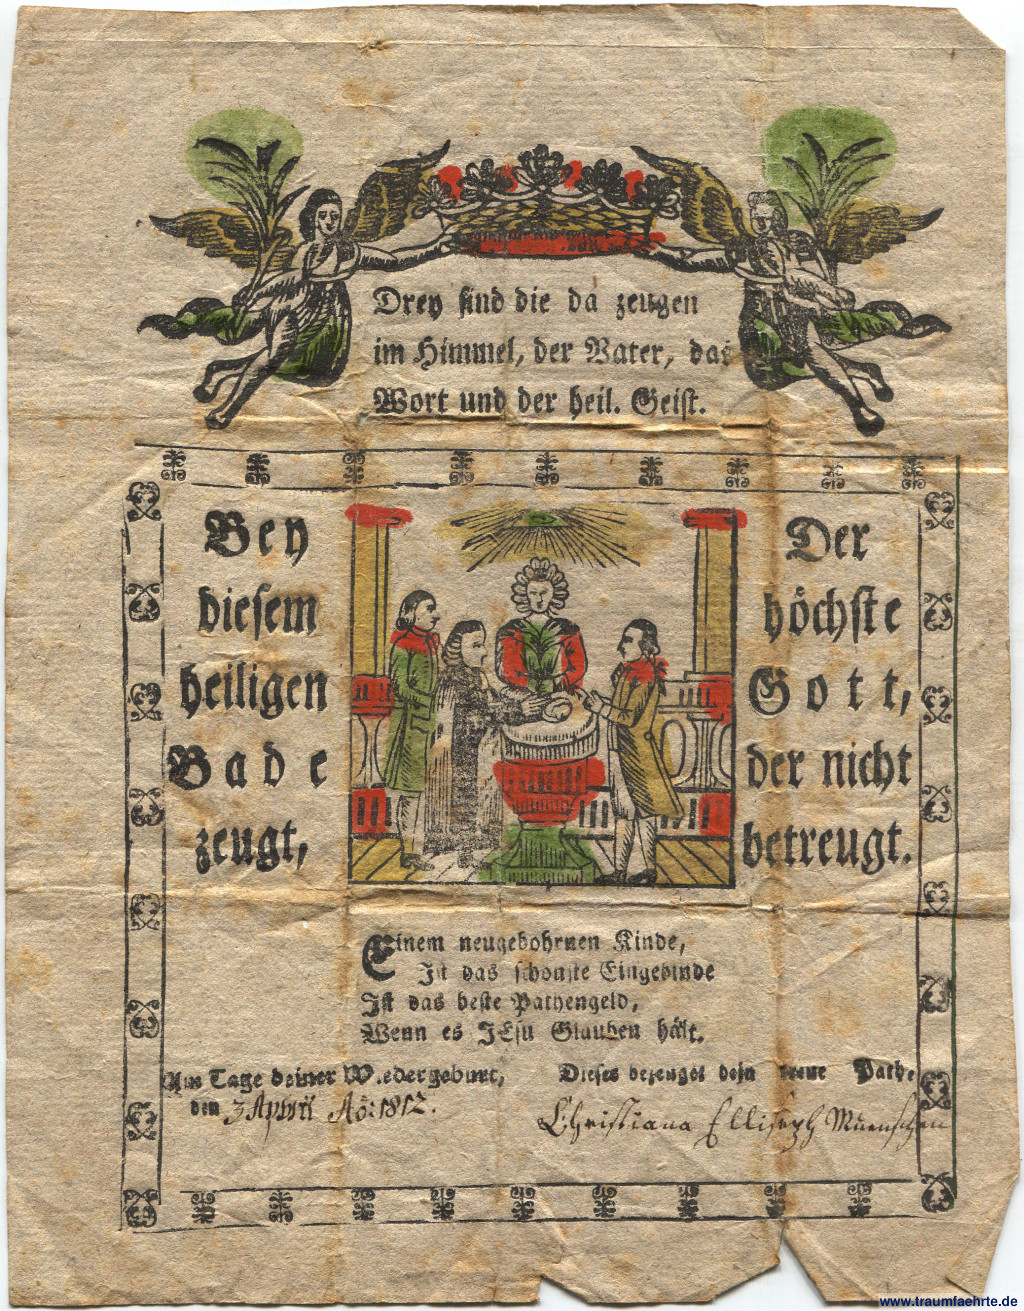 Drey sind die da zeugen
im Himmel, der Vater, das
Wort und der heil. Geist.
Bey
diesem
heiligen
Bade
zeugt,
Der
höchste
Gott,
der nicht
betreugt.
Einem neugebohrnen Kinde,
Ist das schönste Eingebinde
Ist das beste Pathengeld,
Wenn es JEsu Glauben hält.
Am Tage deiner Wiedergeburt,
den 3 April Ao: 1812.
Dieses bezeuget dein treue Pathe
Christiana
www.traumfaehrte.de